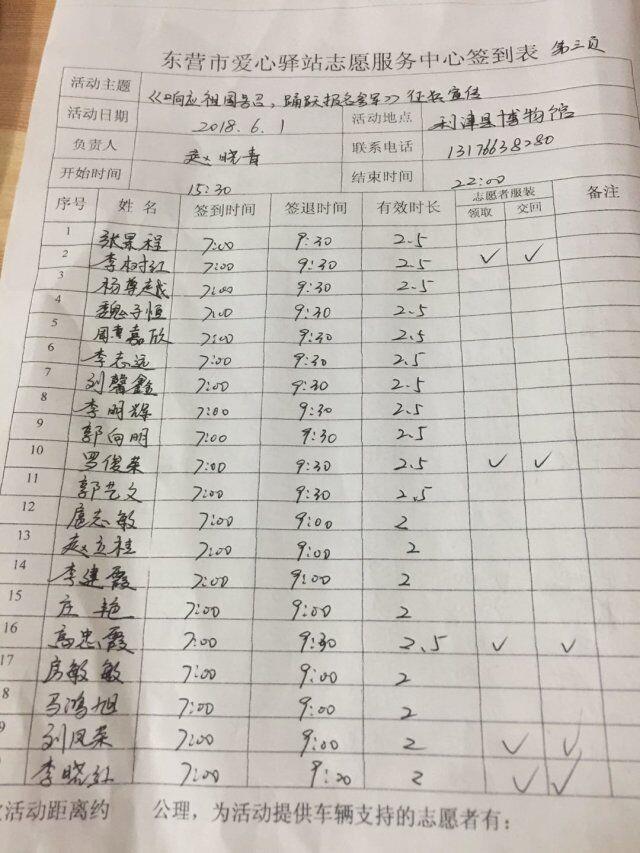 东营市爱心驿站志愿服务中心签到表 第三页
活动主题 《响应祖国号召，踊跃报名参军》征兵宣传
活动日期 2018.6.1 活动地点 利津县博物馆
负责人 赵晓青 联系电话 13176638280
开始时间 15:30 结束时间 22:00
序号 姓名 签到时间 签退时间 有效时长 志愿者服装 备注
领取 交回
1 张景程 7:00 9:30 2.5
2 李树红 7:00 9:30 2.5 ✓ ✓
3 杨尊越 7:00 9:30 2.5
4 魏守恒 7:00 9:30 2.5
5 周嘉欣 7:00 9:30 2.5
6 李志远 7:00 9:30 2.5
7 刘馨鑫 7:00 9:30 2.5
8 李明辉 7:00 9:30 2.5
9 郭向明 7:00 9:30 2.5
10 罗俊荣 7:00 9:30 2.5 ✓ ✓
11 郭艺文 7:00 9:30 2.5
12 扈志敏 7:00 9:00 2
13 赵立桂 7:00 9:00 2
14 李建霞 7:00 9:00 2
15 庄艳 7:00 9:00 2
16 高忠霞 7:00 9:30 2.5 ✓ ✓
17 房敏敏 7:00 9:00 2
8 马鸿旭 7:00 9:00 2
9 刘凤荣 7:00 9:00 2 ✓ ✓
李晓红 7:00 9:00 2 ✓ ✓
活动距离约 公理，为活动提供车辆支持的志愿者有：